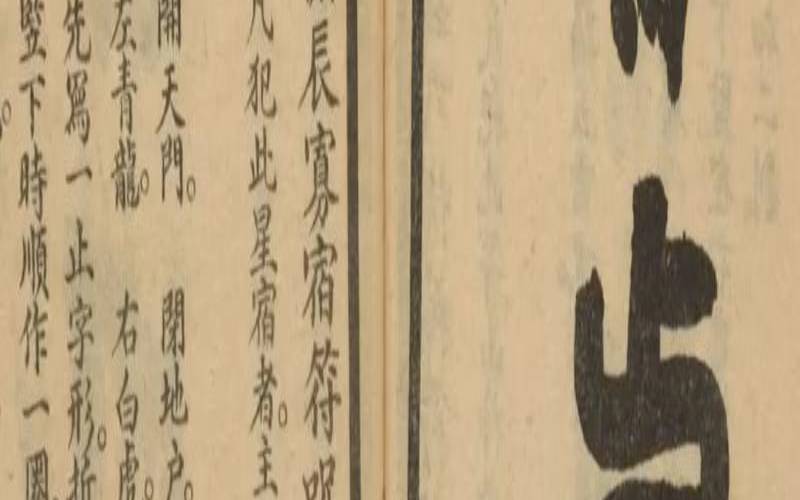 辰寡宿符咒
凡犯此星宿者。主
開天門。　閉地戶。
左青龍。　右白虎。
先寫一止字形。折
豎下時順作一圈